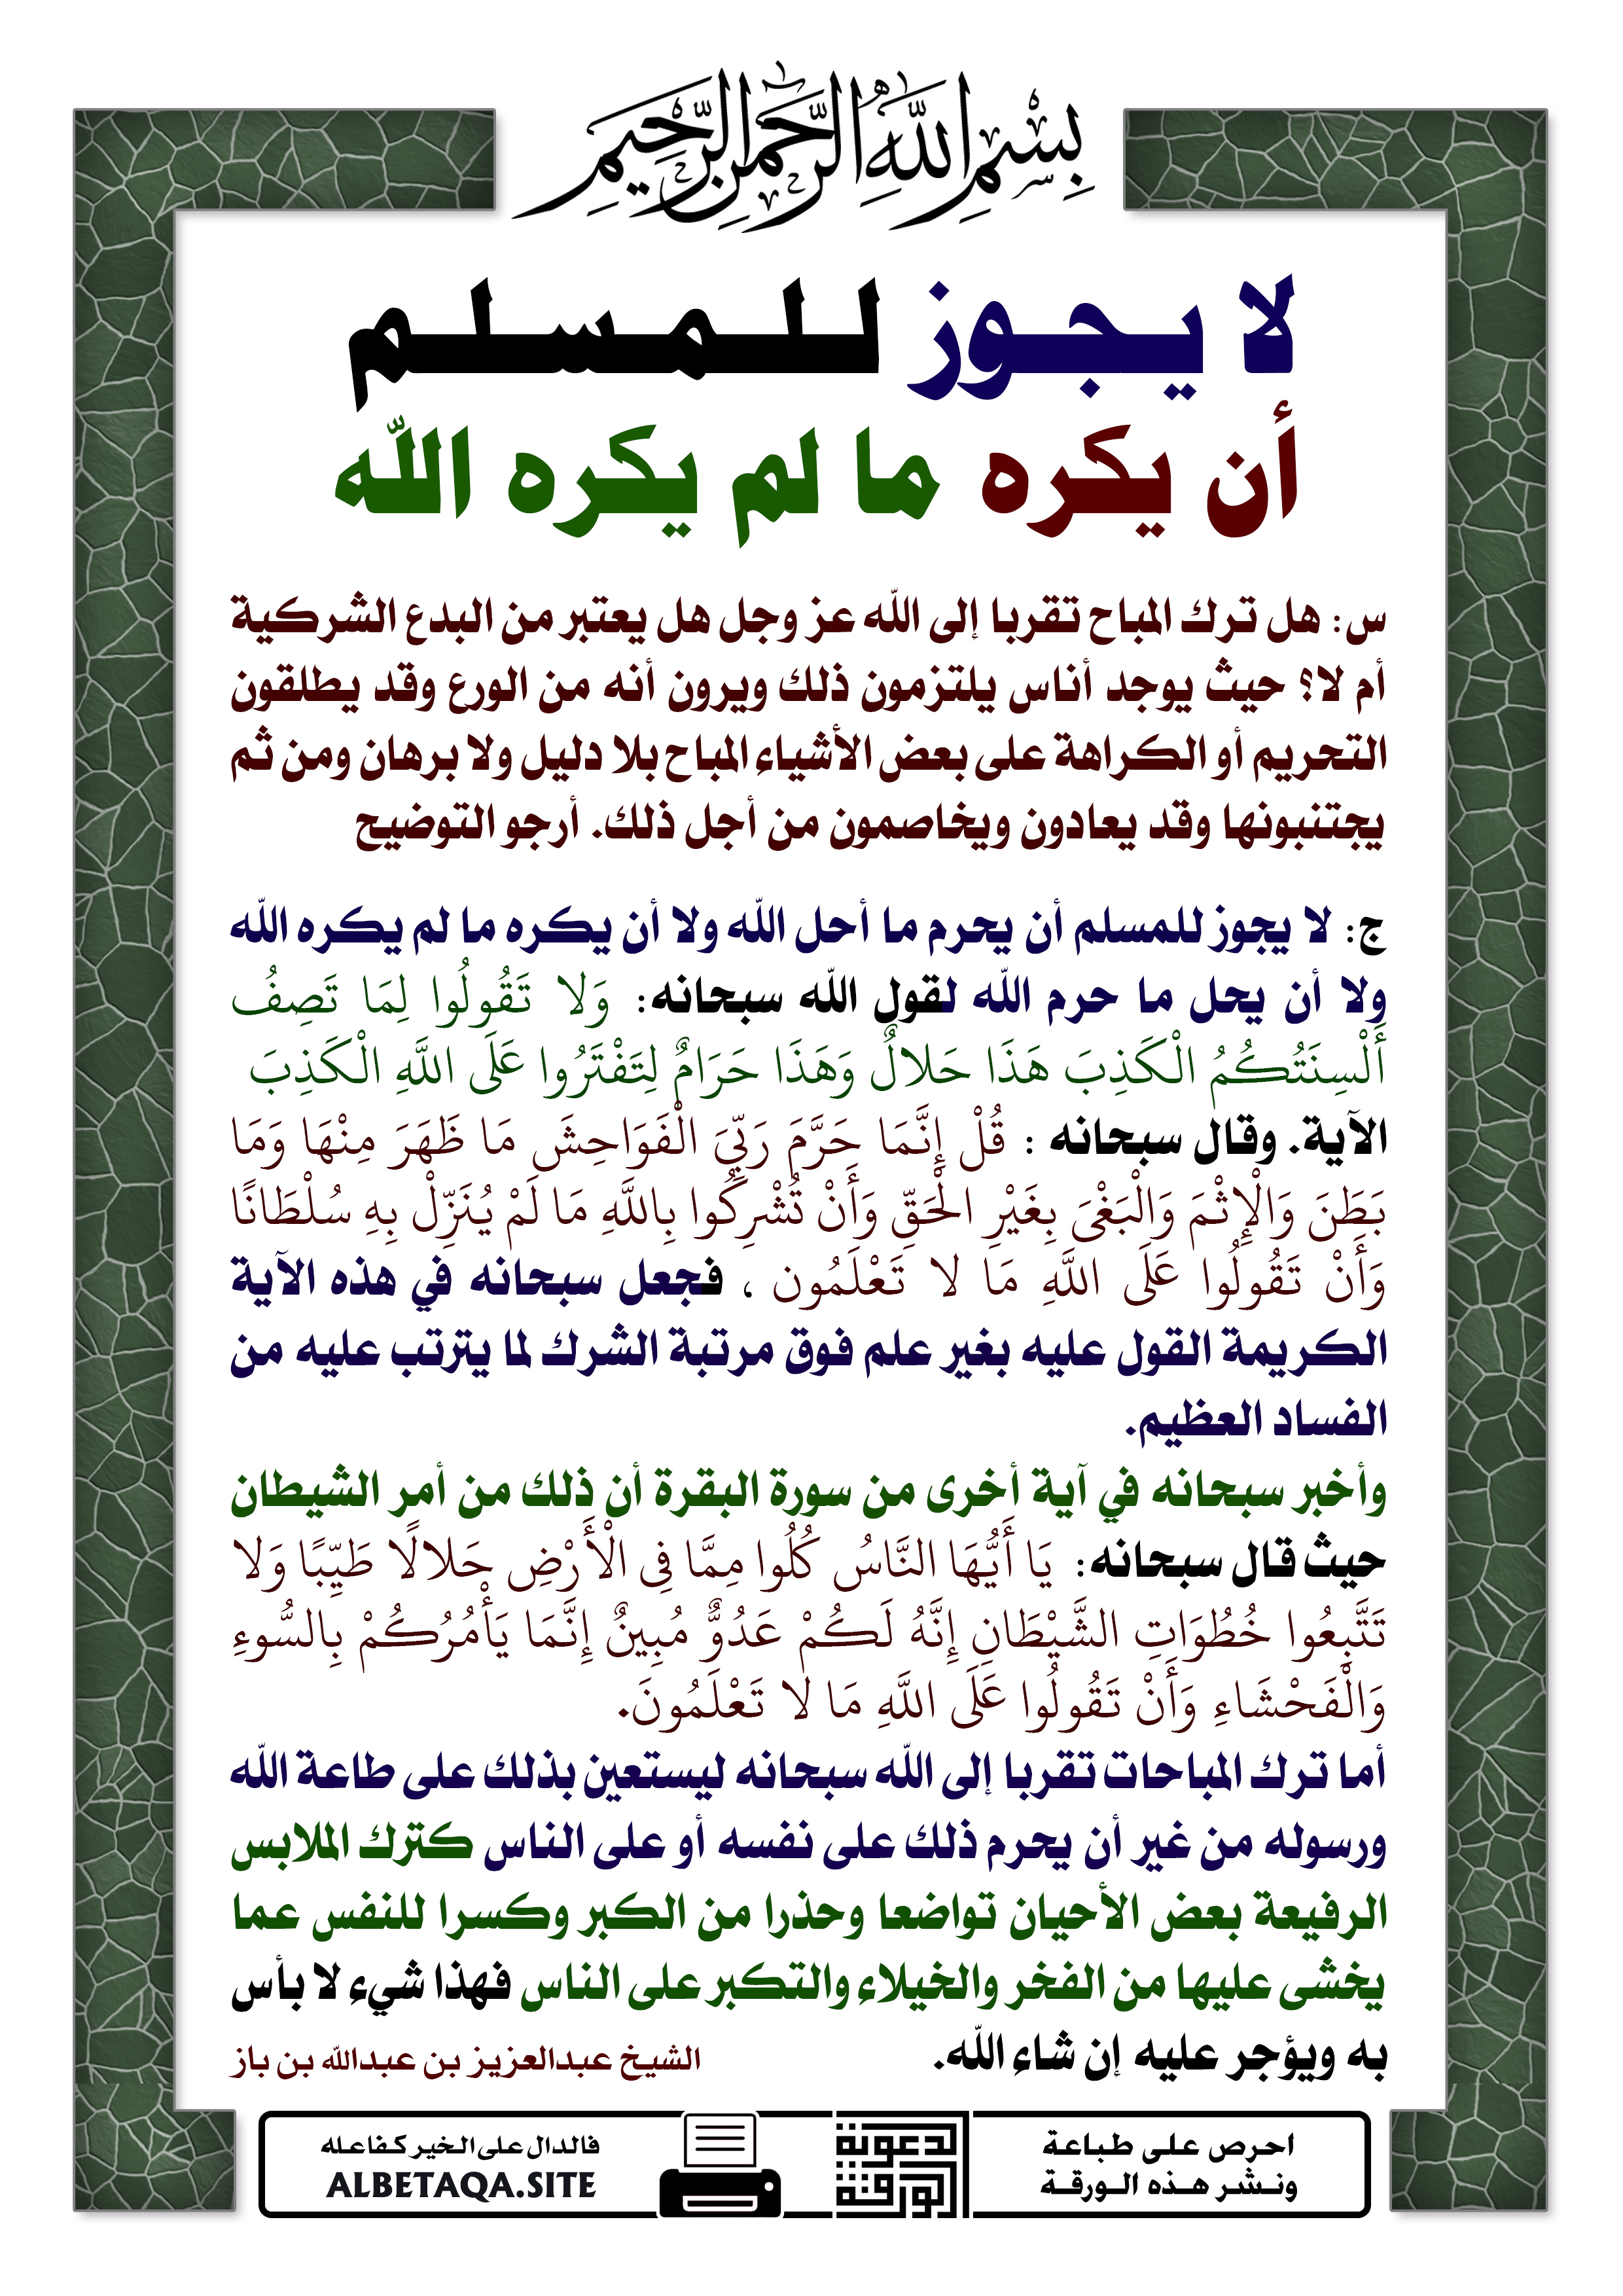 بسم الله الرحمن الرحيم
لا يجوز للمسلم
أن يكره ما لم يكره الله
س: هل ترك المباح تقربا إلى الله عز وجل هل يعتبر من البدع الشركية
أم لا؟ حيث يوجد أناس يلتزمون ذلك ويرون أنه من الورع وقد يطلقون
التحريم أو الكراهة على بعض الأشياء المباح بلا دليل ولا برهان ومن ثم
يجتنبونها وقد يعادون ويخاصمون من أجل ذلك. أرجو التوضيح
ج: لا يجوز للمسلم أن يحرم ما أحل الله ولا أن يكره ما لم يكره الله
ولا أن يحل ما حرم الله لقول الله سبحانه: وَلا تَقُولُوا لِمَا تَصِفُ
أَلْسِنَتُكُمُ الْكَذِبَ هَذَا حَلالٌ وَهَذَا حَرَامٌ لِتَفْتَرُوا عَلَى اللَّهِ الْكَذِبَ
الآية. وقال سبحانه : قُلْ إِنَّمَا حَرَّمَ رَبِّيَ الْفَوَاحِشَ مَا ظَهَرَ مِنْهَا وَمَا
بَطَنَ وَالْإِثْمَ وَالْبَغْيَ بِغَيْرِ الْحَقِّ وَأَنْ تُشْرِكُوا بِاللَّهِ مَا لَمْ يُنَزِّلْ بِهِ سُلْطَانًا
وَأَنْ تَقُولُوا عَلَى اللَّهِ مَا لا تَعْلَمُون ، فجعل سبحانه في هذه الآية
الكريمة القول عليه بغير علم فوق مرتبة الشرك لما يترتب عليه من
الفساد العظيم.
وأخبر سبحانه في آية أخرى من سورة البقرة أن ذلك من أمر الشيطان
حيث قال سبحانه: يَا أَيُّهَا النَّاسُ كُلُوا مِمَّا فِي الْأَرْضِ حَلالًا طَيِّبًا وَلا
تَتَّبِعُوا خُطُوَاتِ الشَّيْطَانِ إِنَّهُ لَكُمْ عَدُوٌّ مُبِينٌ إِنَّمَا يَأْمُرُكُمْ بِالسُّوءِ
وَالْفَحْشَاءِ وَأَنْ تَقُولُوا عَلَى اللَّهِ مَا لا تَعْلَمُونَ.
أما ترك المباحات تقربا إلى الله سبحانه ليستعين بذلك على طاعة الله
ورسوله من غير أن يحرم ذلك على نفسه أو على الناس كترك الملابس
الرفيعة بعض الأحيان تواضعا وحذرا من الكبر وكسرا للنفس عما
يخشى عليها من الفخر والخيلاء والتكبر على الناس فهذا شيء لا بأس
به ويؤجر عليه إن شاء الله.
الشيخ عبدالعزيز بن عبدالله بن باز
احرص على طباعة
ونشر هذه الورقة
الدعوية
الورقة
فالدال على الخير كفاعله
ALBETAQA.SITE